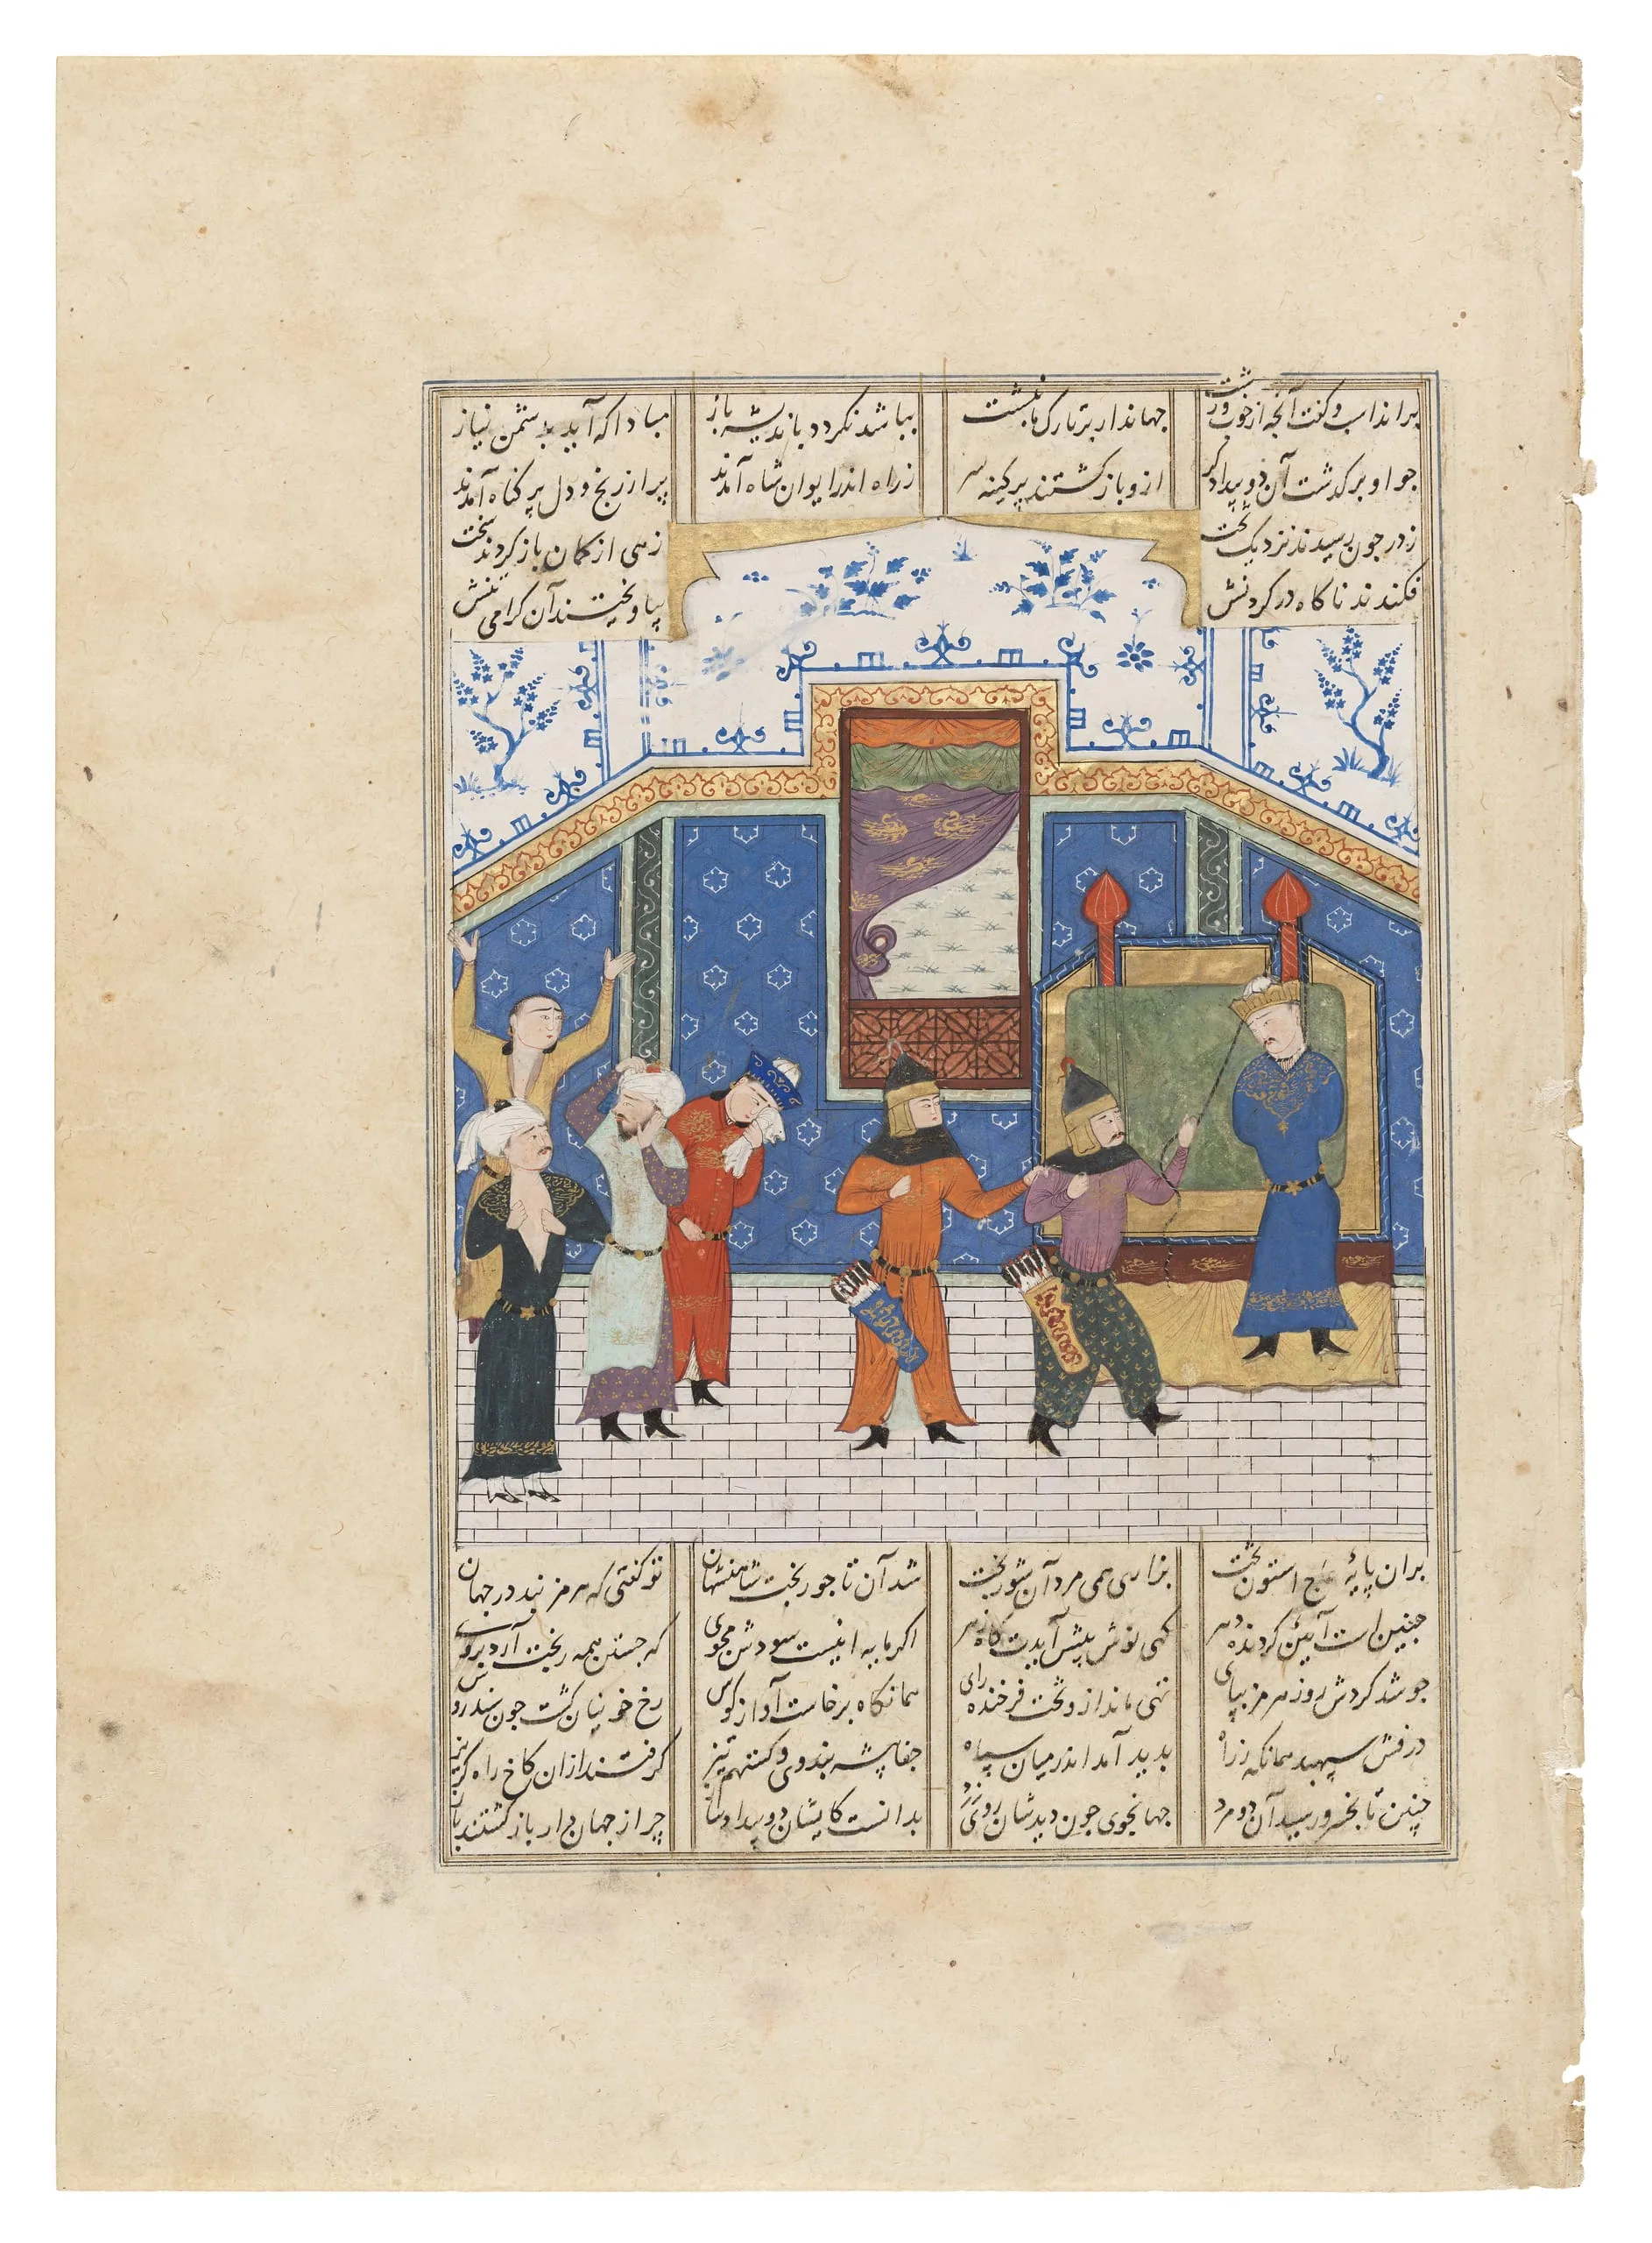 و گفت آنجه از
جهاندار بر تارک ما نبشت
بباشد نکردد باندیشه باز
مبادا که آید بدشمن نیاز
جو او برکذشت آن دو بیدادکر
ازو بازکشتند پر کینه سر
ز راه اندر ایوان شاه آمدند
پر از رنج و دل پر کناه آمدند
ز در جون رسیدند نزدیک تخت
زهی از کمان باز کردند سخت
فکندند ناکاه در کردنش
بیاویختند آن کرامی تنش
بران پایۀ عاج استون تخت
بزاری همی مرد آن شوربخت
شد آن تاجور تخت شاهنشهان
تو کفتی که هرمز نبد در جهان
جنین است آیین کردنده دهر
کهی نوش پیش آیدت کاه زهر
اکر مایه اینست سودش مجوی
که جستن همه رنجت آرد بروی
جو شد کردش روز هرمز بپای
تهی ماند ازو تخت فرخنده رای
همانکاه برخاست آواز کوس
رخ خونیان کشت جون سندروس
درفش سپهبد همانکه ز راه
بدید آمد اندر میان سپاه
جفاپیشه بندوی و کستهم تیز
کرفتند ازان کاخ راه کریز
چنین تا بخسرو رسید آن دو مرد
جهانجوی جون دیدشان روی زرد
بدانست کایشان دو
چرا از جهاندار باز کشتند